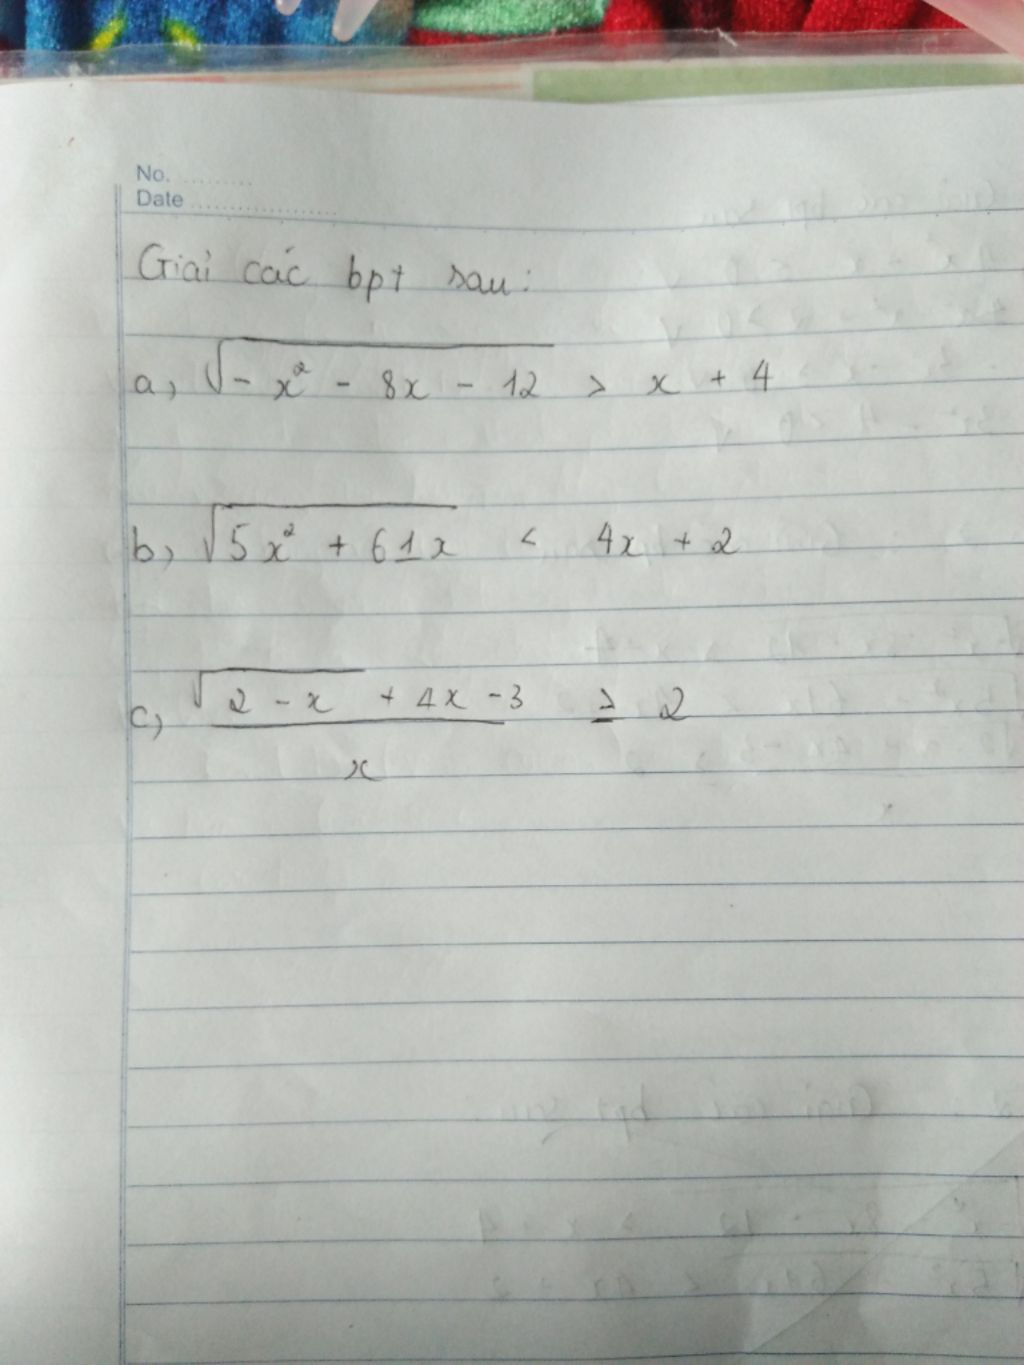 No. ..........
Date ....................
Giải các bpt sau:
a, √(-x² - 8x - 12) > x + 4
b, √(5x² + 61x) < 4x + 2
c, √(2 - x) + 4x - 3 ≥ 2
x